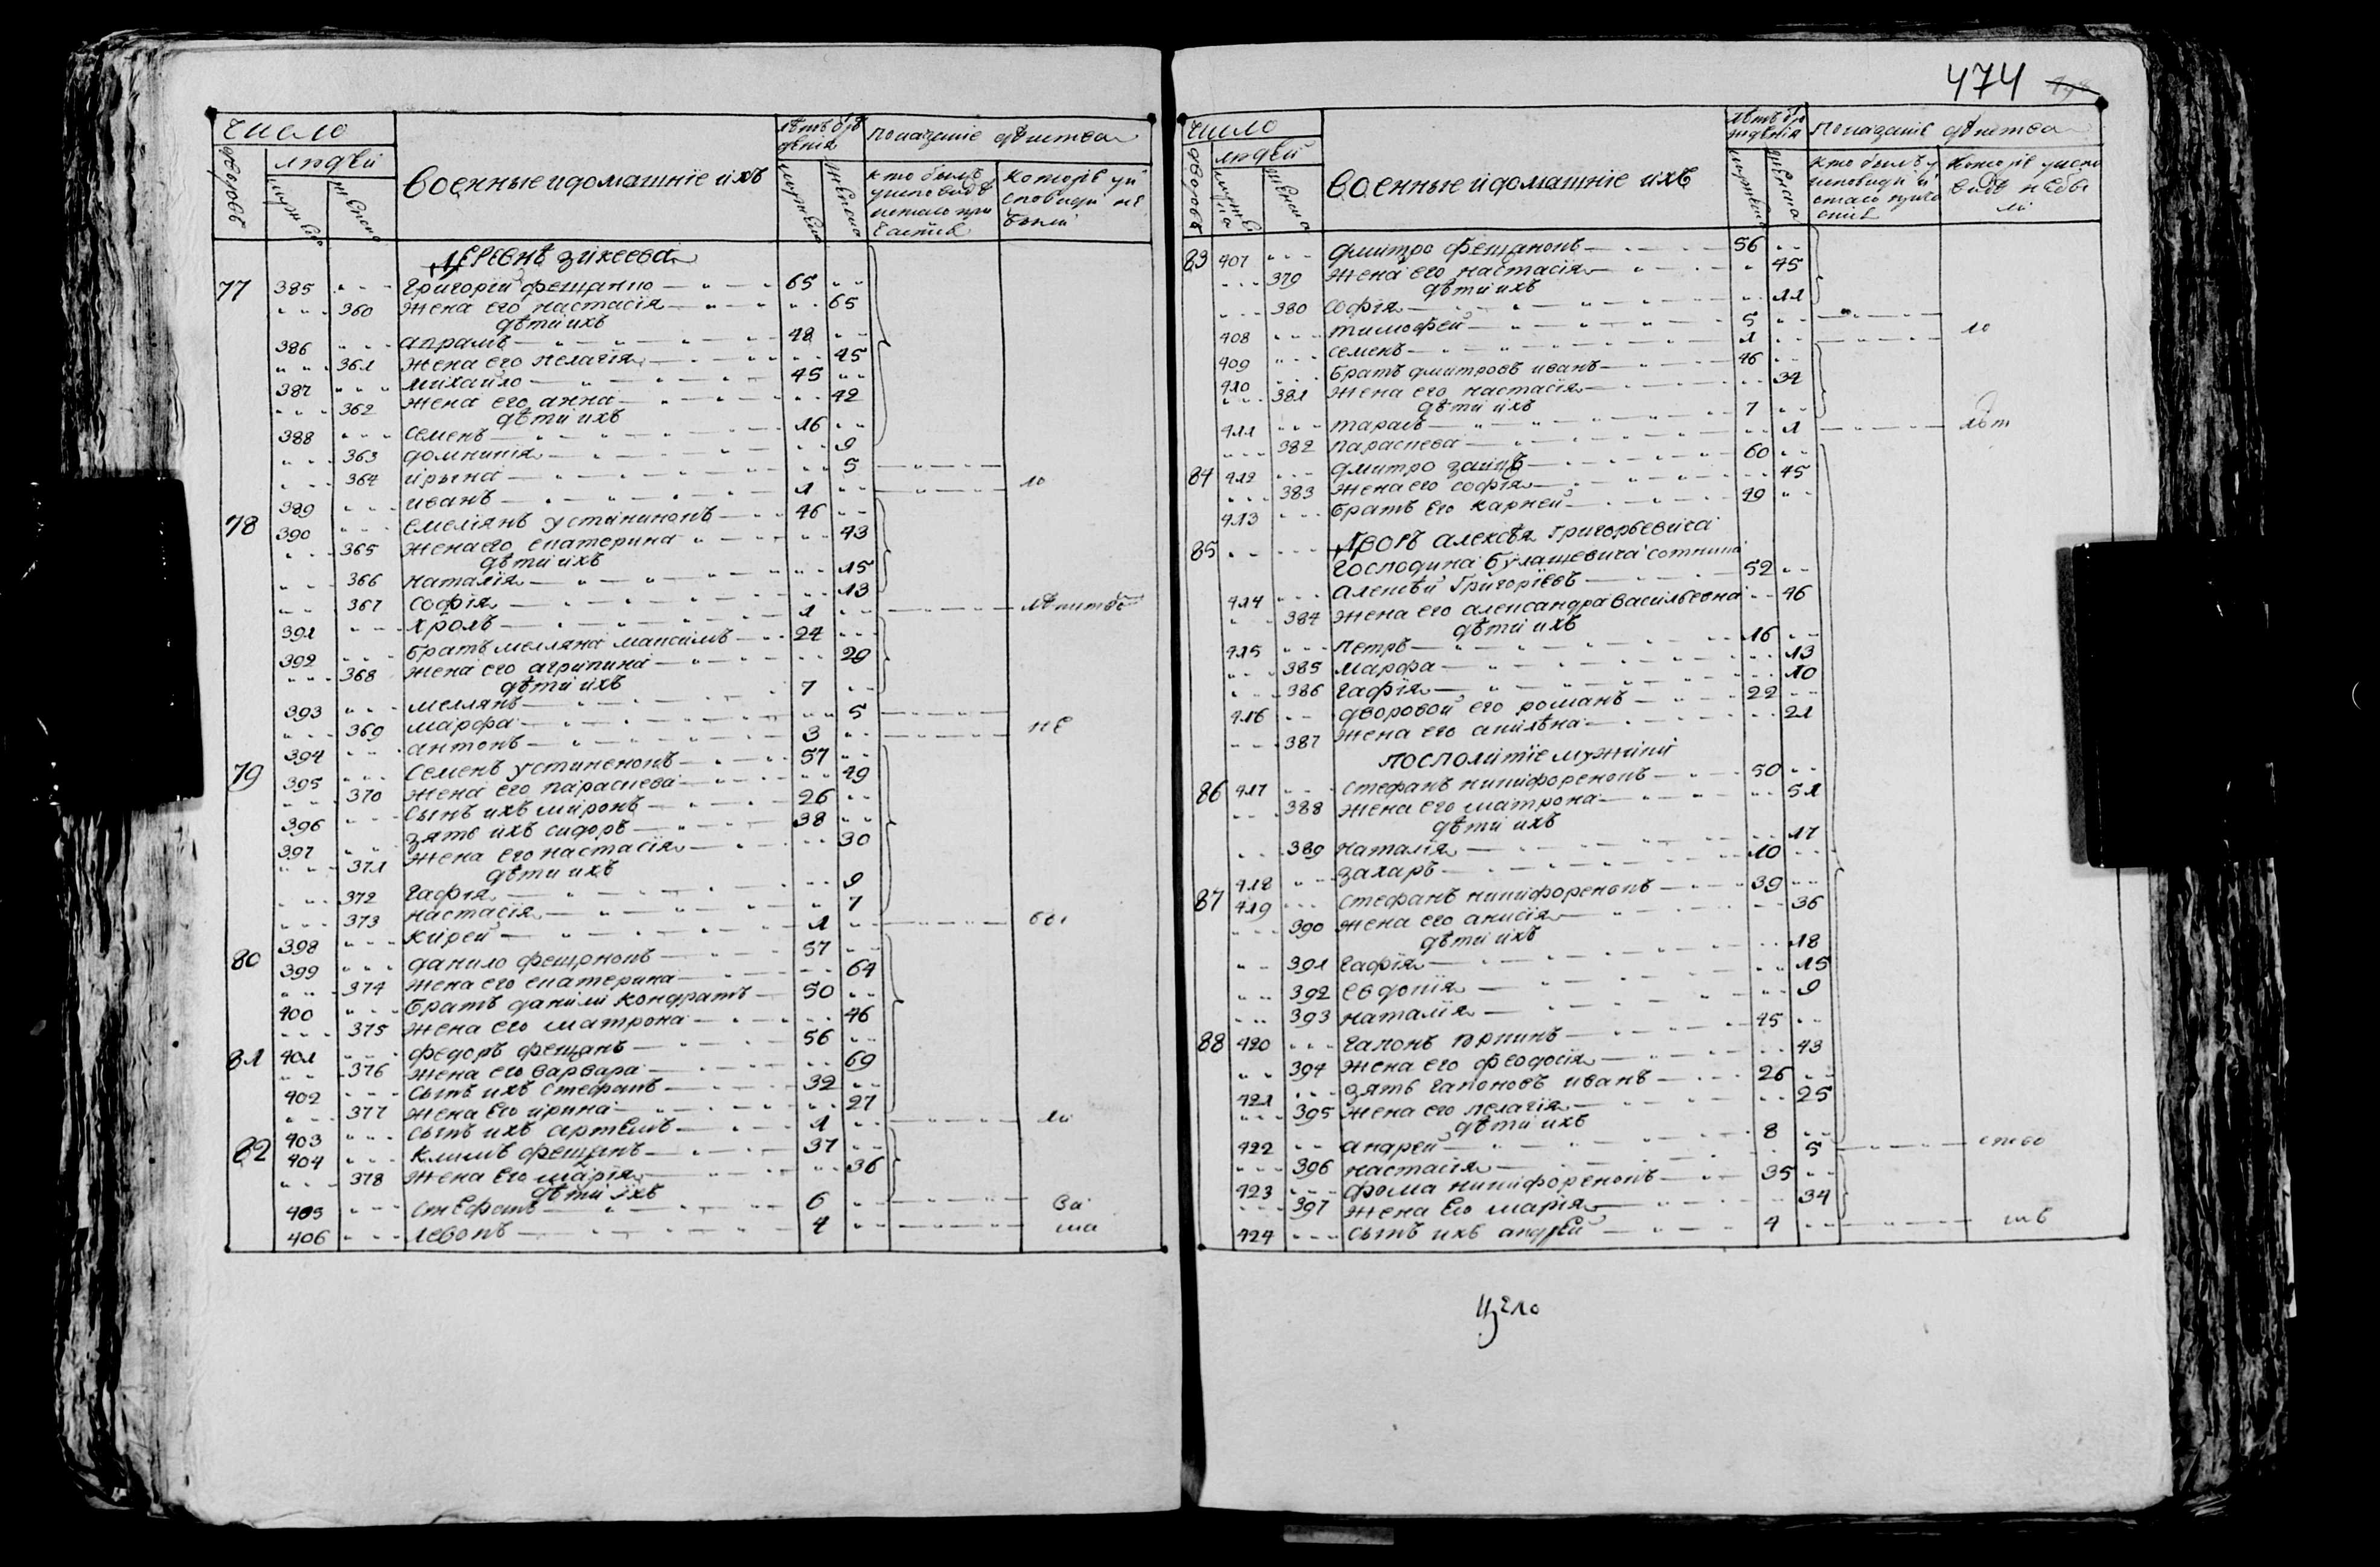 474
число
дворовъ
людей
мужеска
женска
военные и домашнїе ихъ
лѣтъ ѿ рождѣнїя
мужеска
женска
показанїе дѣиства
кто былъ у исповеди и у стаго причастия
которїе у исповеди не были
деревнѣ зикеева
77 385 григорїй фещанко 65
360 жена его настасїя 65
дѣти ихъ
386 апрамъ 48
361 жена его пелагїя 45
387 михайло 45
362 жена его анна 42
дѣти ихъ
388 семенъ 16
363 домникия 9
364 ирына 5
389 иванъ 1 ло
78 390 емелїянъ устинкокъ 46
365 жена его екатерина 43
дѣти ихъ
366 наталїя 15
367 софїя 13
391 хролъ 1
392 братъ мелляна максимъ 24
368 жена его агрипина 29
дѣти ихъ
393 меллянъ 7
369 марфа 5
394 антонъ 3 не
79 395 семенъ устиненокъ 57
370 жена его параскева 49
396 сынъ ихъ миронъ 26
397 зять ихъ сидоръ 38
371 жена его настасїя 30
дѣти ихъ
372 гафїя 9
373 настасїя 7
398 кирей 1
80 399 данило фещенокъ 57
374 жена его екатерина 64
400 братъ данили кондратъ 50
375 жена его матрона 46
81 401 федоръ фещанъ 56
376 жена его варвара 69
402 сынъ ихъ стефанъ 32
377 жена его ирина 27
403 сынъ ихъ артемъ 1 ли
82 404 климъ фещанъ 37
378 жена его марїя 36
дѣти їхъ
405 стефанъ 6 за
406 левонъ 4
число
дворовъ
людей
мужеска
женска
военные и домашнїе ихъ
лѣтъ ѿ рождѣнїя
мужеска
женска
показанїе дѣиства
кто былъ у исповеди и стаго причастия
которїе у исповеди не были
83 407 дмитро фещанокъ 56
379 жена его настасїя 45
дѣти ихъ
380 софїя 11
408 тимофей 5
409 семенъ 1
410 братъ дмитровъ иванъ 46
381 жена его настасїя 34
дѣти ихъ
411 тарасъ 7
382 параскева 1 лѣт
84 412 дмитро заицъ 60
383 жена его софїя 45
413 братъ его карней 49
85 дворъ алексѣя григорьевича
господина булашевича сотника
414 алексѣй григорїевъ 52
384 жена его александра васильевна 46
дѣти ихъ
415 петръ 16
385 марфа 13
386 гафїя 10
416 дворовой его романъ 22
387 жена его акилѣна 21
посполитїе мужики
86 417 стефанъ никифоренокъ 50
388 жена его матрона 51
дѣти ихъ
389 наталїя 17
418 захаръ 10
87 419 стефанъ никифоренокъ 39
390 жена его анисїя 36
дѣти ихъ
391 гафїя 18
392 евдокїя 15
393 наталїя 9
88 420 гапонъ юркинъ 45
394 жена его феодосїя 43
421 зять гапоновъ иванъ 26
395 жена его пелагїя 25
дѣти ихъ
422 андрей 8
396 настасїя 5
423 фома никифоренокъ 35
397 жена его марїя 34
424 сынъ ихъ андрей 4